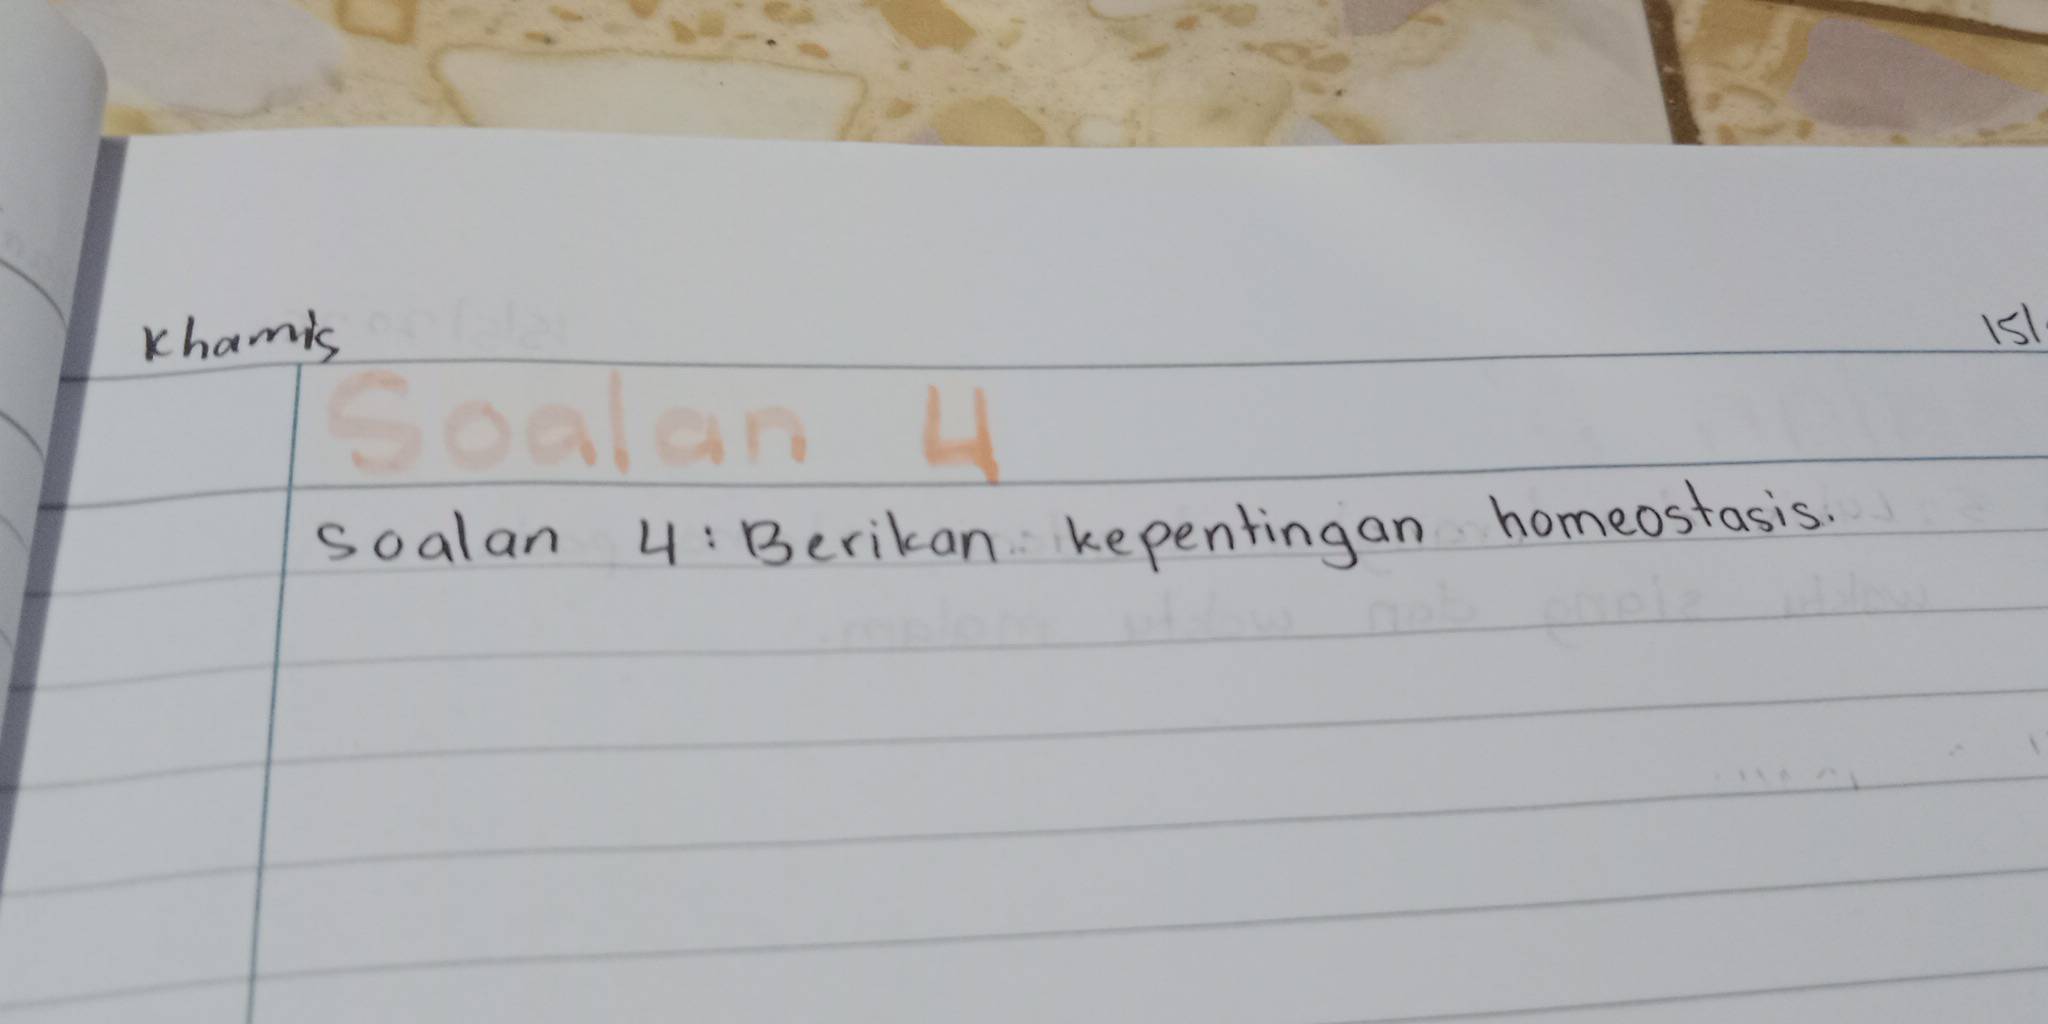 Khamis 15/
Soalan 4
Soalan 4: Berikan kepentingan homeostasis.